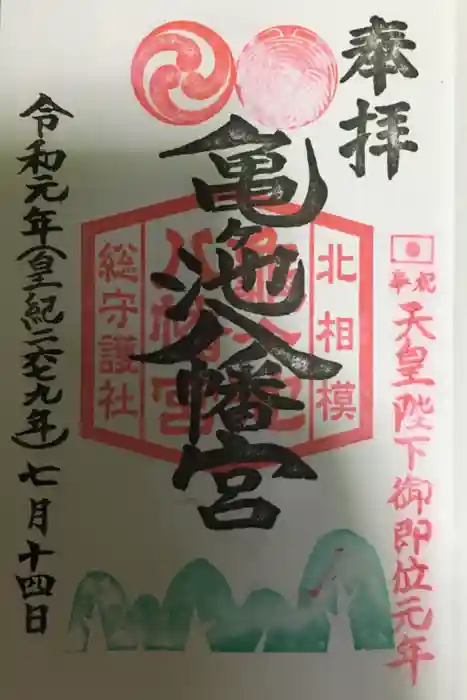 奉拝
奉祝
天皇陛下御即位元年
北相模
亀ヶ池
八幡宮
総守護社
亀ヶ池八幡宮
令和元年(皇紀二六七九年)七月十四日